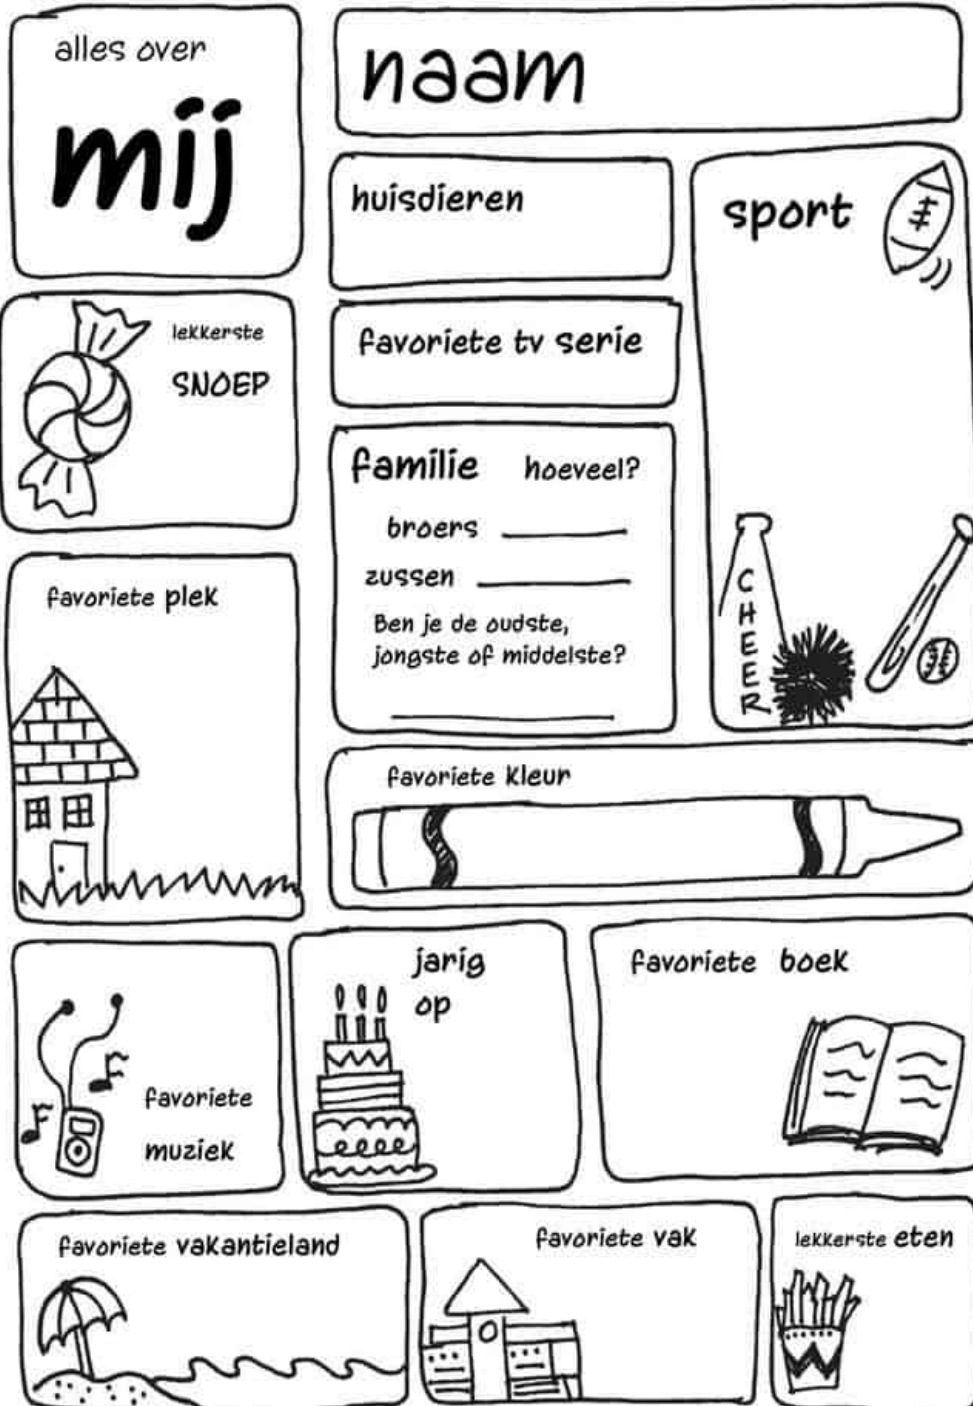 alles over
mij
naam
huisdieren
sport
lekkerste
SNOEP
favoriete tv serie
familie hoeveel?
broers
zussen
Ben je de oudste,
jongste of middelste?
CHEER
favoriete plek
favoriete kleur
favoriete
muziek
jarig
op
favoriete boek
favoriete vakantieland
favoriete vak
lekkerste eten